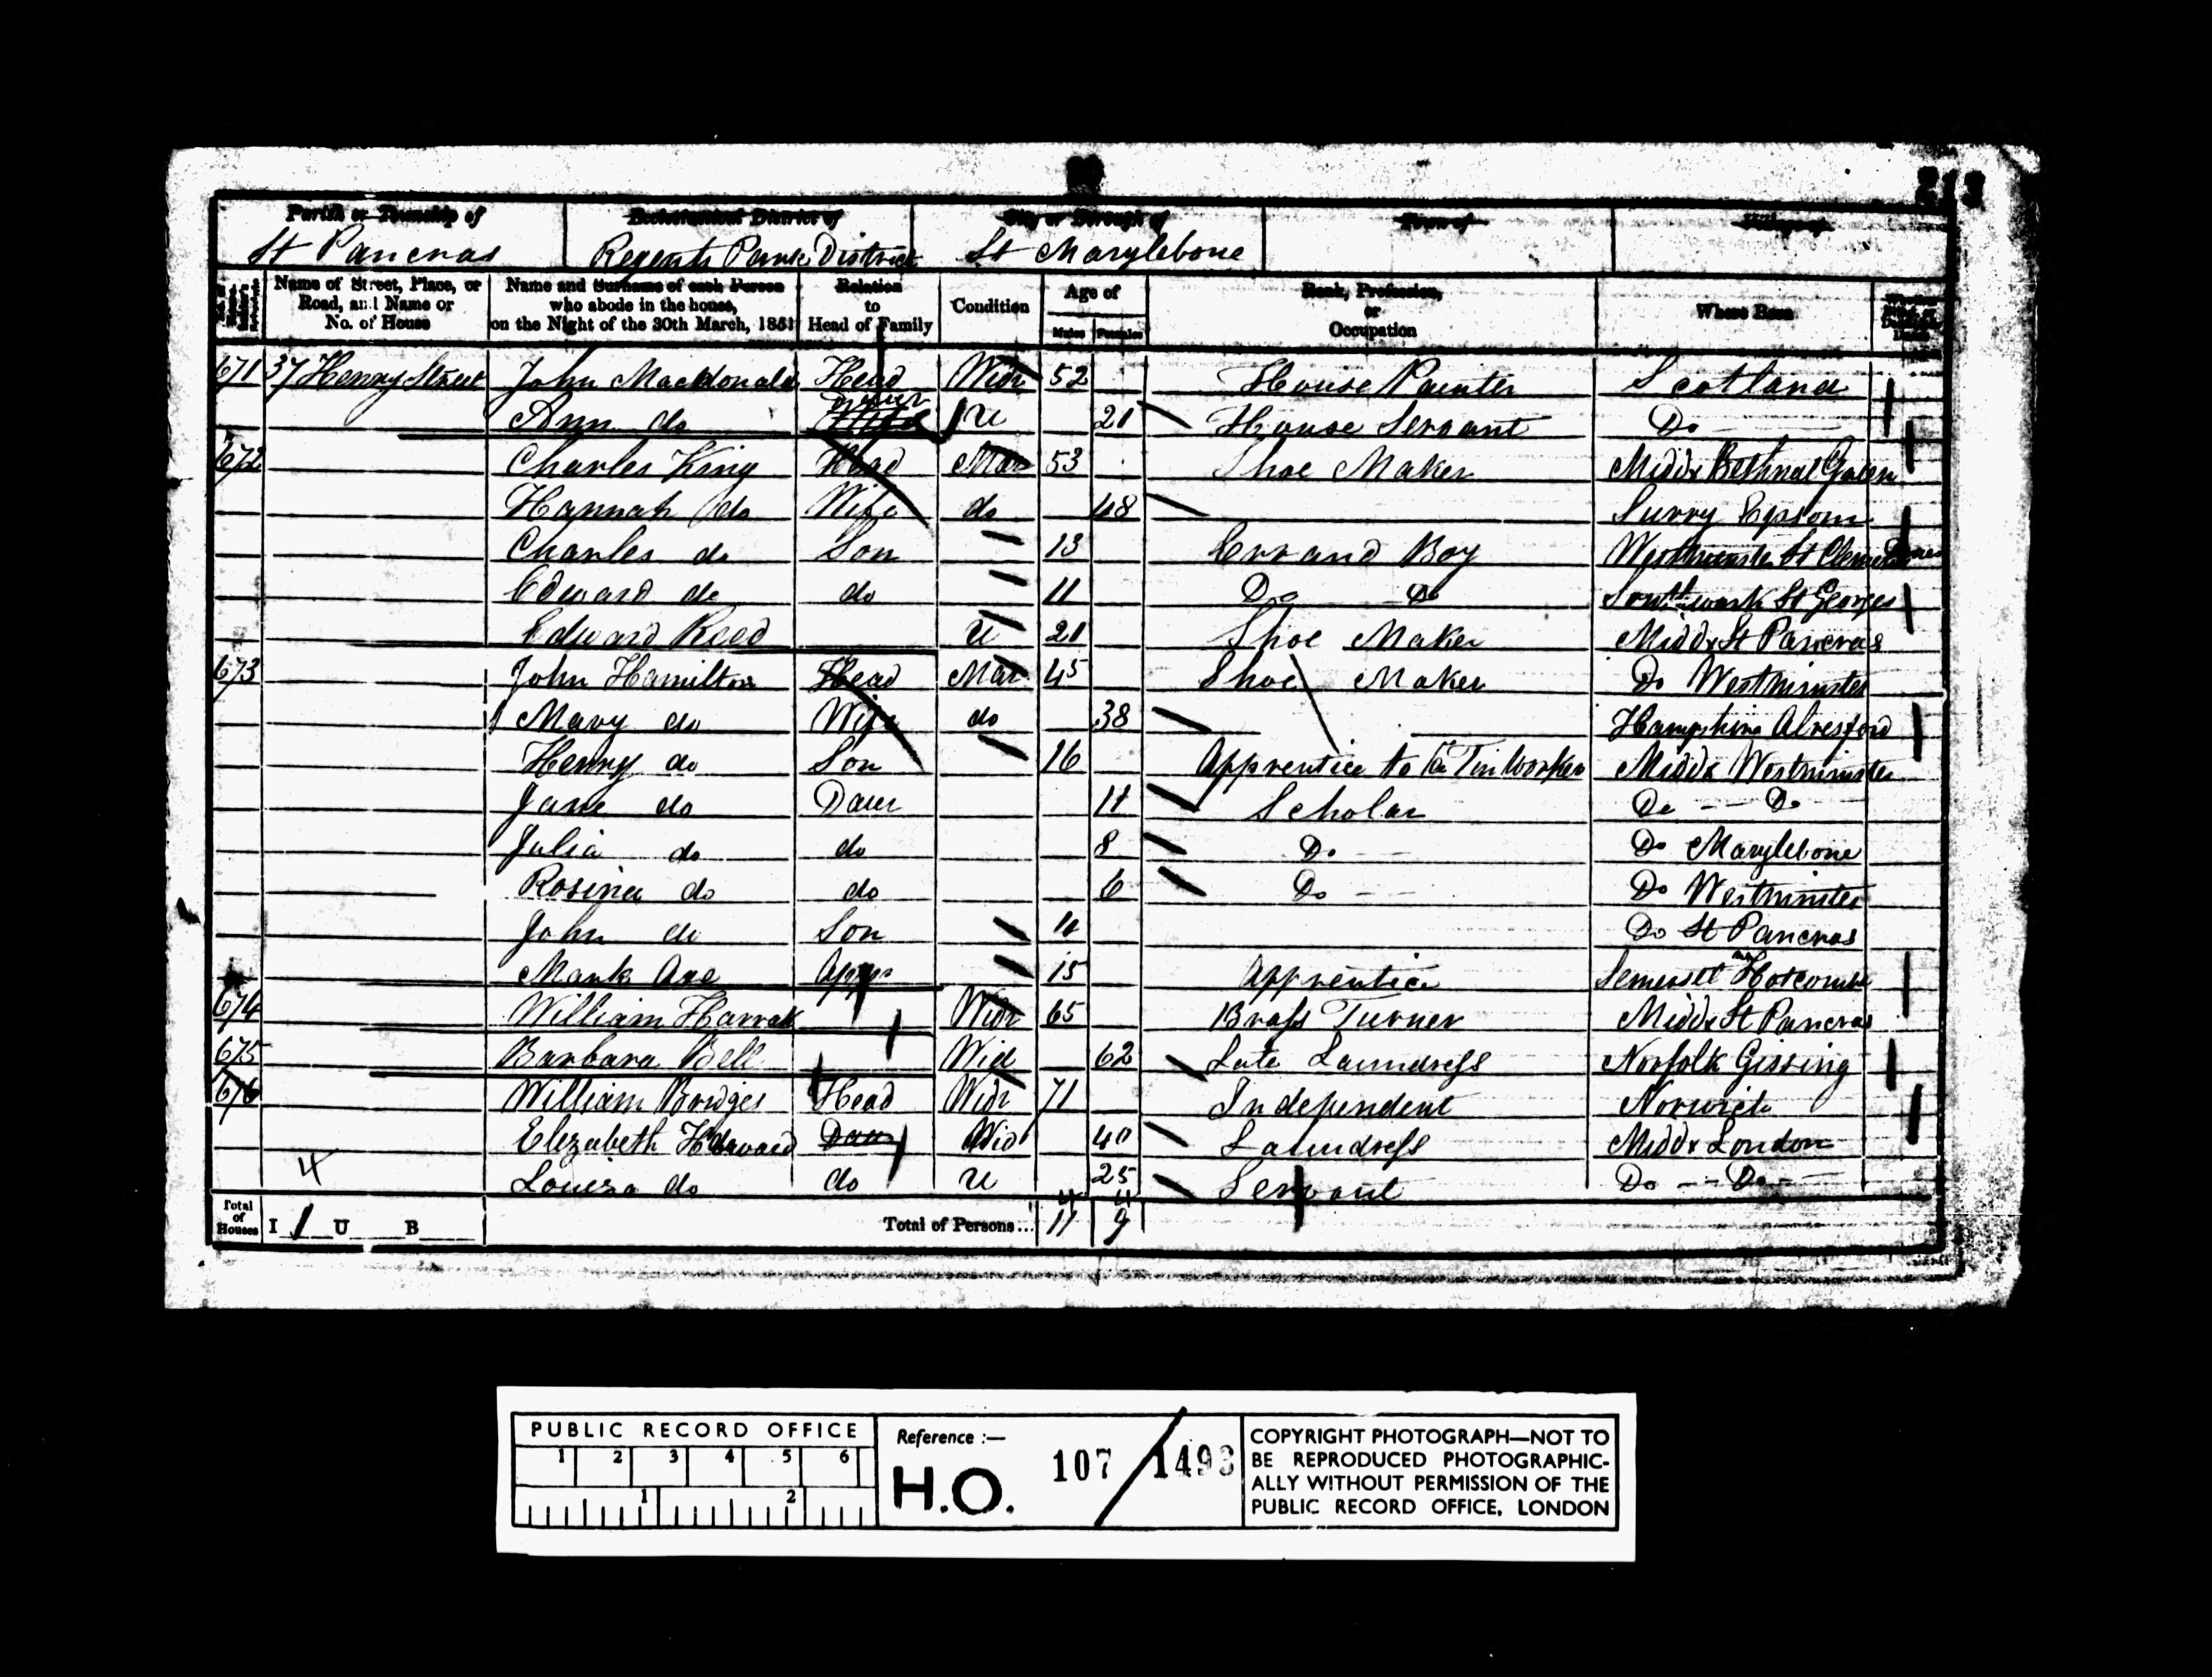 213
Parish or Township of Ecclesiastical District of City or Borough of Town of Village of
St Pancras Regents Park District St Marylebone
Name of Street, Place, or Road, and Name or No. of House Name and Surname of each Person who abode in the house, on the Night of the 30th March, 1851 Relation to Head of Family Condition Age of Males Females Rank, Profession, or Occupation Where Born
671 37 Henry Street John Macdonald Head Widr 52 House Painter Scotland
Ann do Daur U 21 House Servant Do
672 Charles King Head Mar 53 Shoe Maker Middx Bethnal Green
Hannah do Wife do 48 Surry Epsom
Charles do Son 13 Errand Boy Westminster St Clement Danes
Edward do do 11 Do Do Southwark St Georges
Edward Reed U 21 Shoe Maker Middx St Pancras
673 John Hamilton Head Mar 45 Shoe Maker Do Westminster
Mary do Wife do 38 Hampshire Alresford
Henry do Son 16 Apprentice to Tin Worker Middx Westminster
Jane do Daur 11 Scholar Do Do
Julia do do 8 Do Do Marylebone
Rosina do do 6 Do Do Westminster
John do Son Do St Pancras
Mark Axe App 15 Apprentice Somerset
674 William Widr 65 Brass Turner Middx St Pancras
675 Barbara Bell Wid 62 Late Laundress Norfolk Gissing
676 William Bridges Head Widr 71 Independent Norwich
Elizabeth Daur Wid 40 Laundress Middx London
4 Louisa do do U 25 Servant Do Do
Total of Houses I 1 U B Total of Persons... 11 9
PUBLIC RECORD OFFICE
1 2 3 4 5 6
1 2
Reference :—
H.O. 107/1493
COPYRIGHT PHOTOGRAPH—NOT TO
BE REPRODUCED PHOTOGRAPHIC-
ALLY WITHOUT PERMISSION OF THE
PUBLIC RECORD OFFICE, LONDON